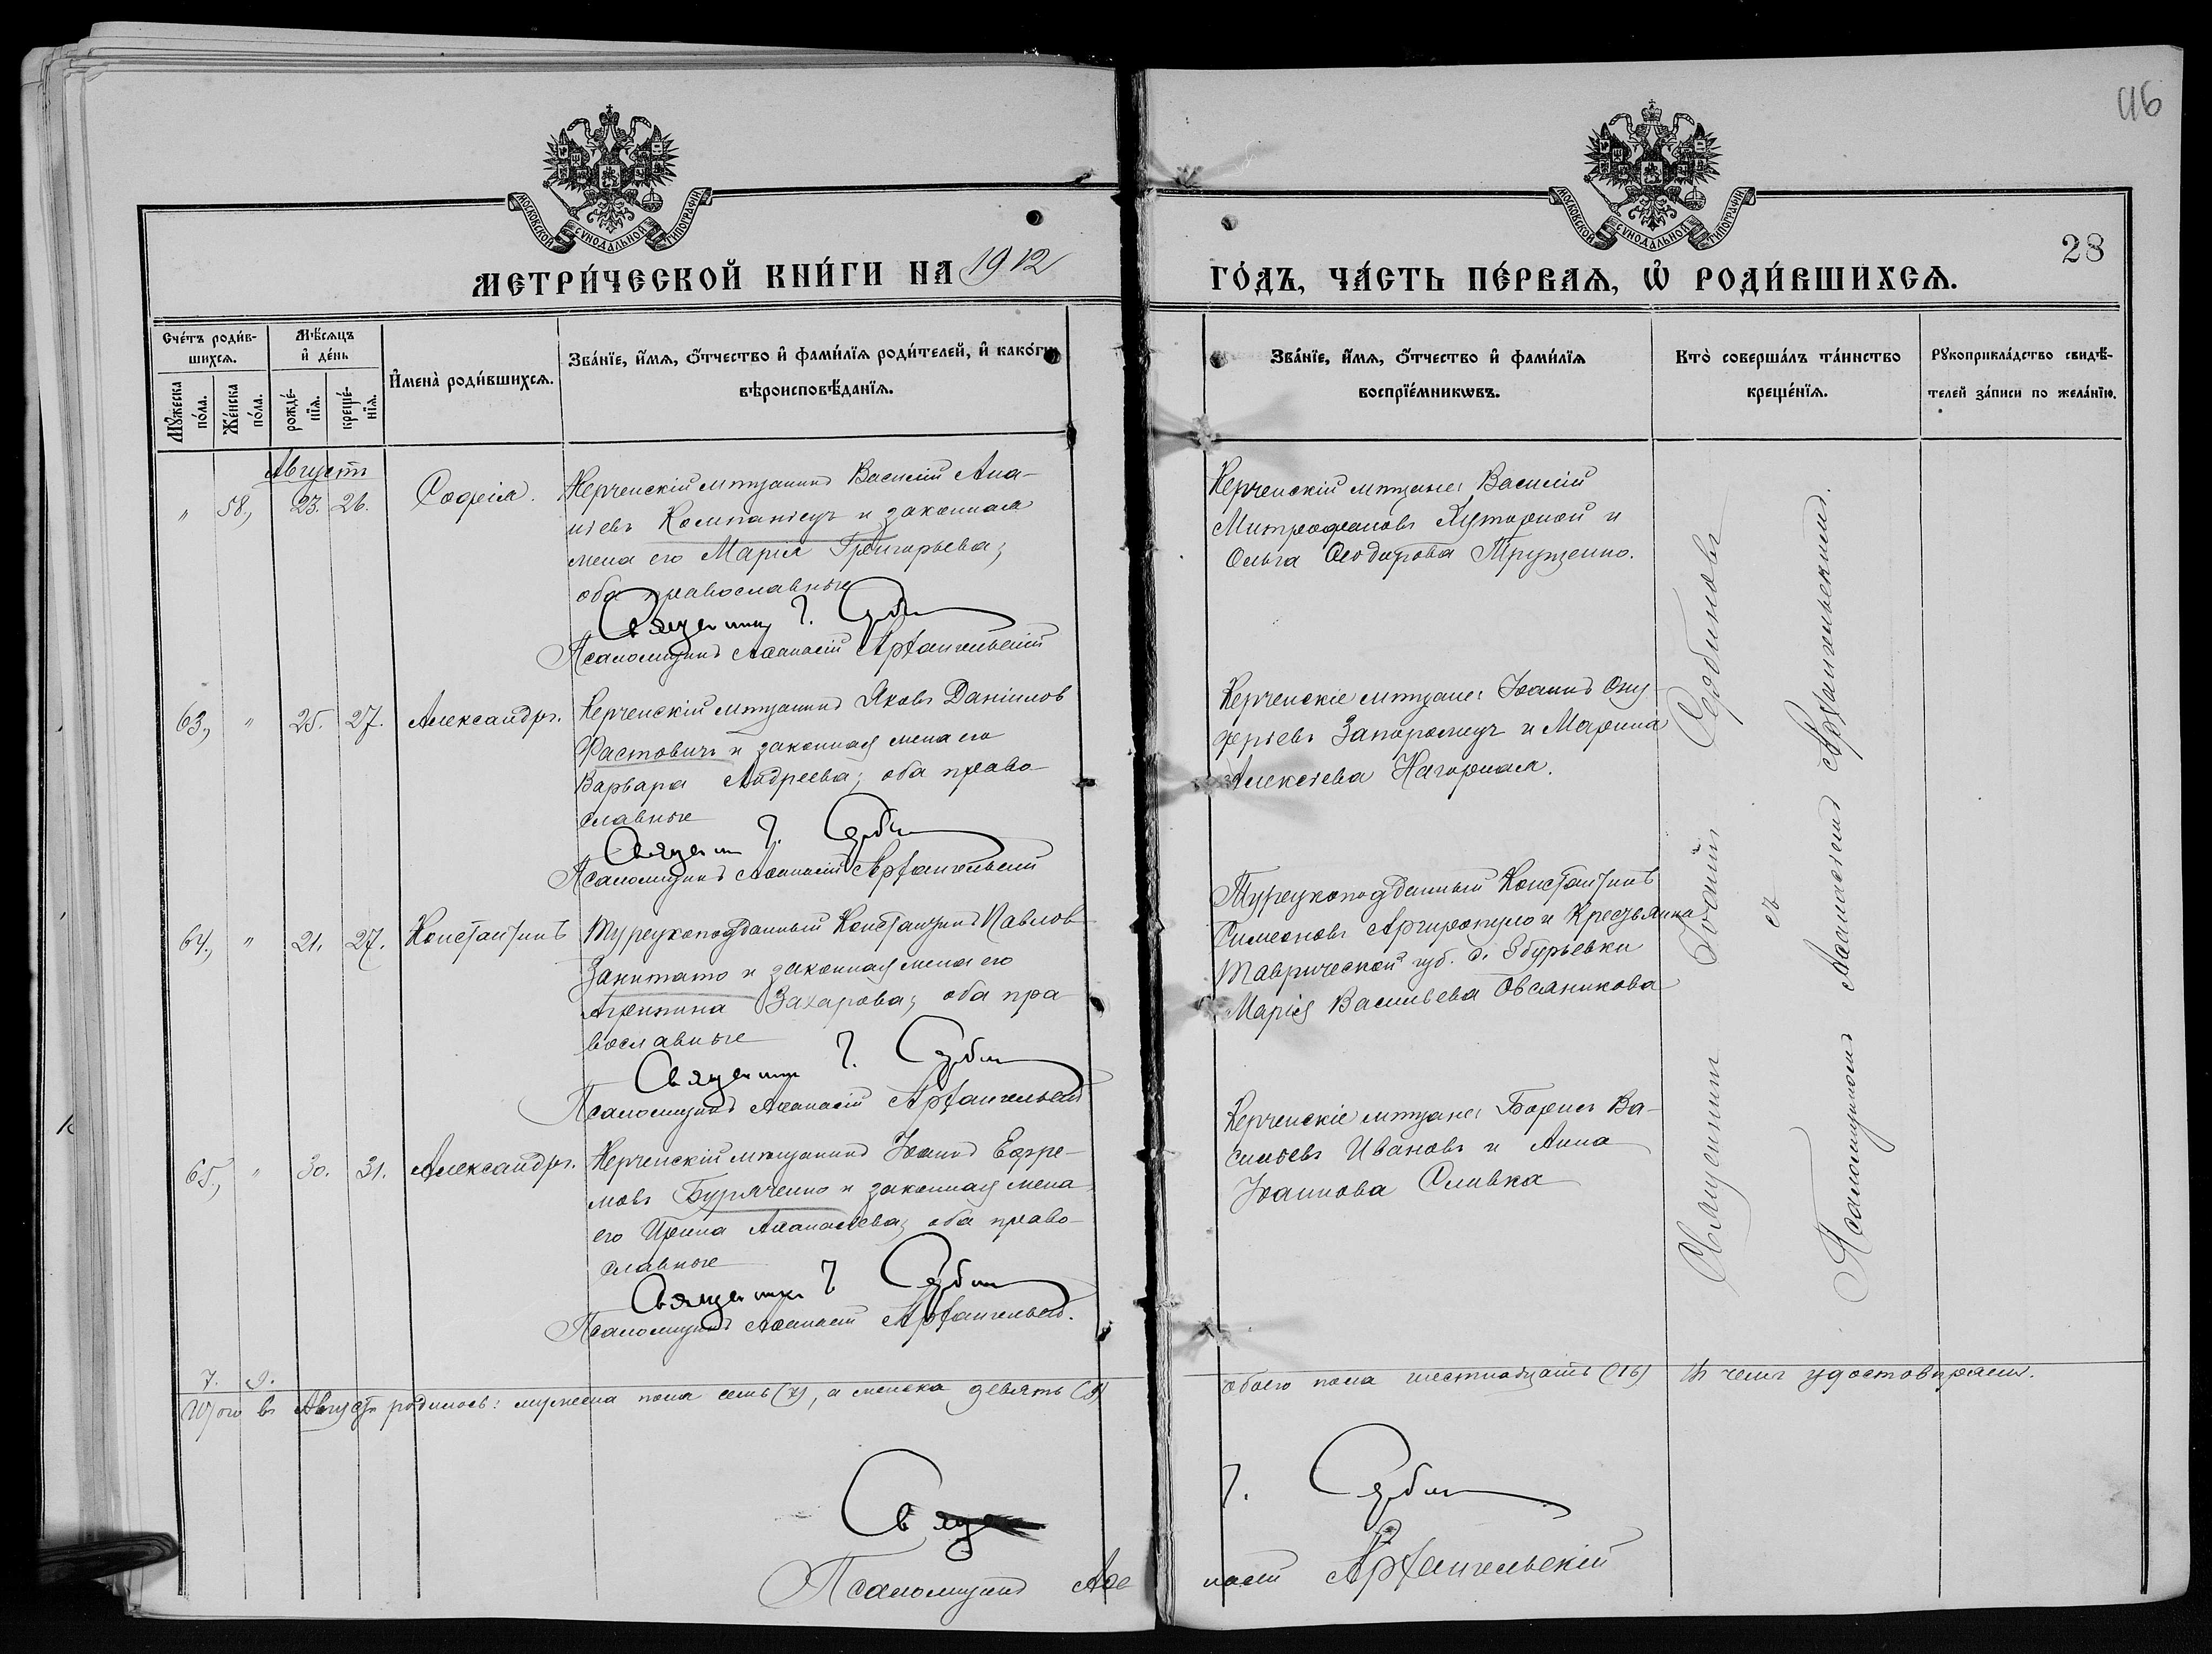 46
МОСКОВСКОЙ СѴНОДАЛЬНОЙ ТИПОГРАФІИ
МОСКОВСКОЙ СѴНОДАЛЬНОЙ ТИПОГРАФІИ
28
МЕТРИ́ЧЕСКОЙ КНИ́ГИ НА 1912
ГО́ДЪ, ЧА́СТЬ ПЕ́РВАѦ, Ѽ РОДИ́ВШИХСѦ.
Сче́тъ роди́в-
шихсѧ.
Мꙋ́жеска
по́ла.
Же́нска
по́ла.
Мѣ́сѧцъ
и҆ де́нь
рожде́-
нїѧ.
креще́-
нїѧ.
И҆мена̀ роди́вшихсѧ.
Зва́нїе, и҆́мѧ, ѻ҆́тчество и҆ фами́лїѧ роди́телей, и҆ како́гѡ
вѣроисповѣ́данїѧ.
Зва́нїе, и҆́мѧ, ѻ҆́тчество и҆ фами́лїѧ
воспрїе́мникѡвъ.
Кто̀ соверша́лъ та́инство
креще́нїѧ.
Рꙋкоприкла́дство свидѣ́-
телей за́писи по жела́нїю.
Августъ
" 58, 23. 26. Софія.
Керченскій мѣщанинъ Василій Ана-
ніевъ Компаніецъ и законная
жена его Марія Григорьева;
оба православные
Священникъ І. Серби
Псаломщикъ Аѳанасій Архангельскій
Керченскій мѣщане: Василій
Митрофановъ Хуторной и
Ольга Ѳеодорова Трущенко.
63, " 25. 27. Александръ.
Керченскій мѣщанинъ Яковъ Даніиловъ
Фастовичъ и законная жена его
Варвара Андреева; оба право-
славные
Священник І. Серби
Псаломщикъ Аѳанасій Архангельскій
Керченскіе мѣщане: Іоаннъ Ону-
фріевъ Запорожецъ и Марина
Алексѣева Нагорная.
64, " 21. 27. Константинъ
Турецкоподданный Константинъ Павловъ
Закитато и законная жена его
Агрипина Захарова; оба пра-
вославные
Священник І. Серби
Псаломщикъ Аѳанасій Архангельскій
Турецкоподданный Константинъ
Симеоновъ Аргиропуло и Крестьянка
Таврической губ. д. Збурьевки
Марія Васильева Овсяникова
65, " 30. 31. Александръ.
Керченскій мѣщанинъ Іоаннъ Ефре-
мовъ Буряченко и законная жена
его Ирина Аѳанасіева; оба право-
славные
Священник І Серби
Псаломщикъ Аѳанасій Архангельскій.
Керченскіе мѣщане: Борисъ Ва-
сильевъ Ивановъ и Анна
Іоаннова Сливка
Священникъ Іоаннъ Сербиновъ
съ
Псаломщикомъ Аѳанасіемъ Архангельскимъ.
7. 9.
Итого въ Августѣ родилось: мужеска пола семь (7), а женска девять (9)
обоего пола шестнадцать (16) Въ чемъ удостовѣряемъ.
І. Серби
Псаломщикъ Аѳанасій Архангельскій